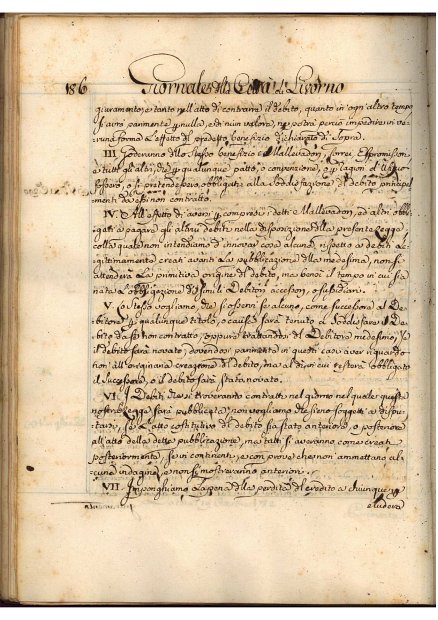 186 Giornale della Città di Livorno
giuramento, e tanto nell'atto di contrarre il debito, quanto in ogn'altro tempo
si avrà parimente p nulla, e di niun valore, ne potrà perciò impedire in ve-
runa forma l'effetto del predetto benefizio dichiarato di sopra.
III. Goderanno dello stesso benefizio i Mallevadori, Correi, Espromissori,
e tutti gli altri, che p qualunque patto, o convenzione, o p ragion
fossero, o si pretendessero obbligati alla soddisfazione del debito principal-
mente da essi non contratto.
IV. All'effetto di aversi p compresi i detti Mallevadori, ed altri obbli-
gati a pagare gli altrui debiti nella disposizione della presente Legge
colla quale non intendiamo d'innovar cosa alcuna rispetto a debiti le-
gittimamente creati avanti la pubblicazione della medesima, non si
attenderà la primitiva origine del debito, ma bensì il tempo in cui sia
nata l'obbligazione de simili Debitori accessori, o sussidiari.
V. Lo stesso vogliamo, che si osservi se alcuno, come successore al De-
bitore p qualunque titolo, o causa sarà tenuto a soddisfare il De-
bito da se non contratto, oppure trattandosi del Debitore medesimo, se il
debito sarà novato, dovendosi parimente in questi casi aver riguardo
non all'originaria creazione del debito, ma al dì in cui resterà obbligato
il successore, o il debito sarà stato novato.
VI. I Debiti, che si troveranno contratti nel giorno nel quale questa
nostra Legge sarà pubblicata, non vogliamo che sieno soggetti a dispu-
tarsi, se l'atto costitutivo del debito sia stato anteriore, o posteriore
all'atto della detta pubblicazione, ma tutti si averanno come creati
posteriormente, se in continenti, e con prove che non ammettano al-
cuna indagine, e non si mostreranno anteriori.
VII. Imponghiamo la pena della perdita del credito a chiunque p
eludere